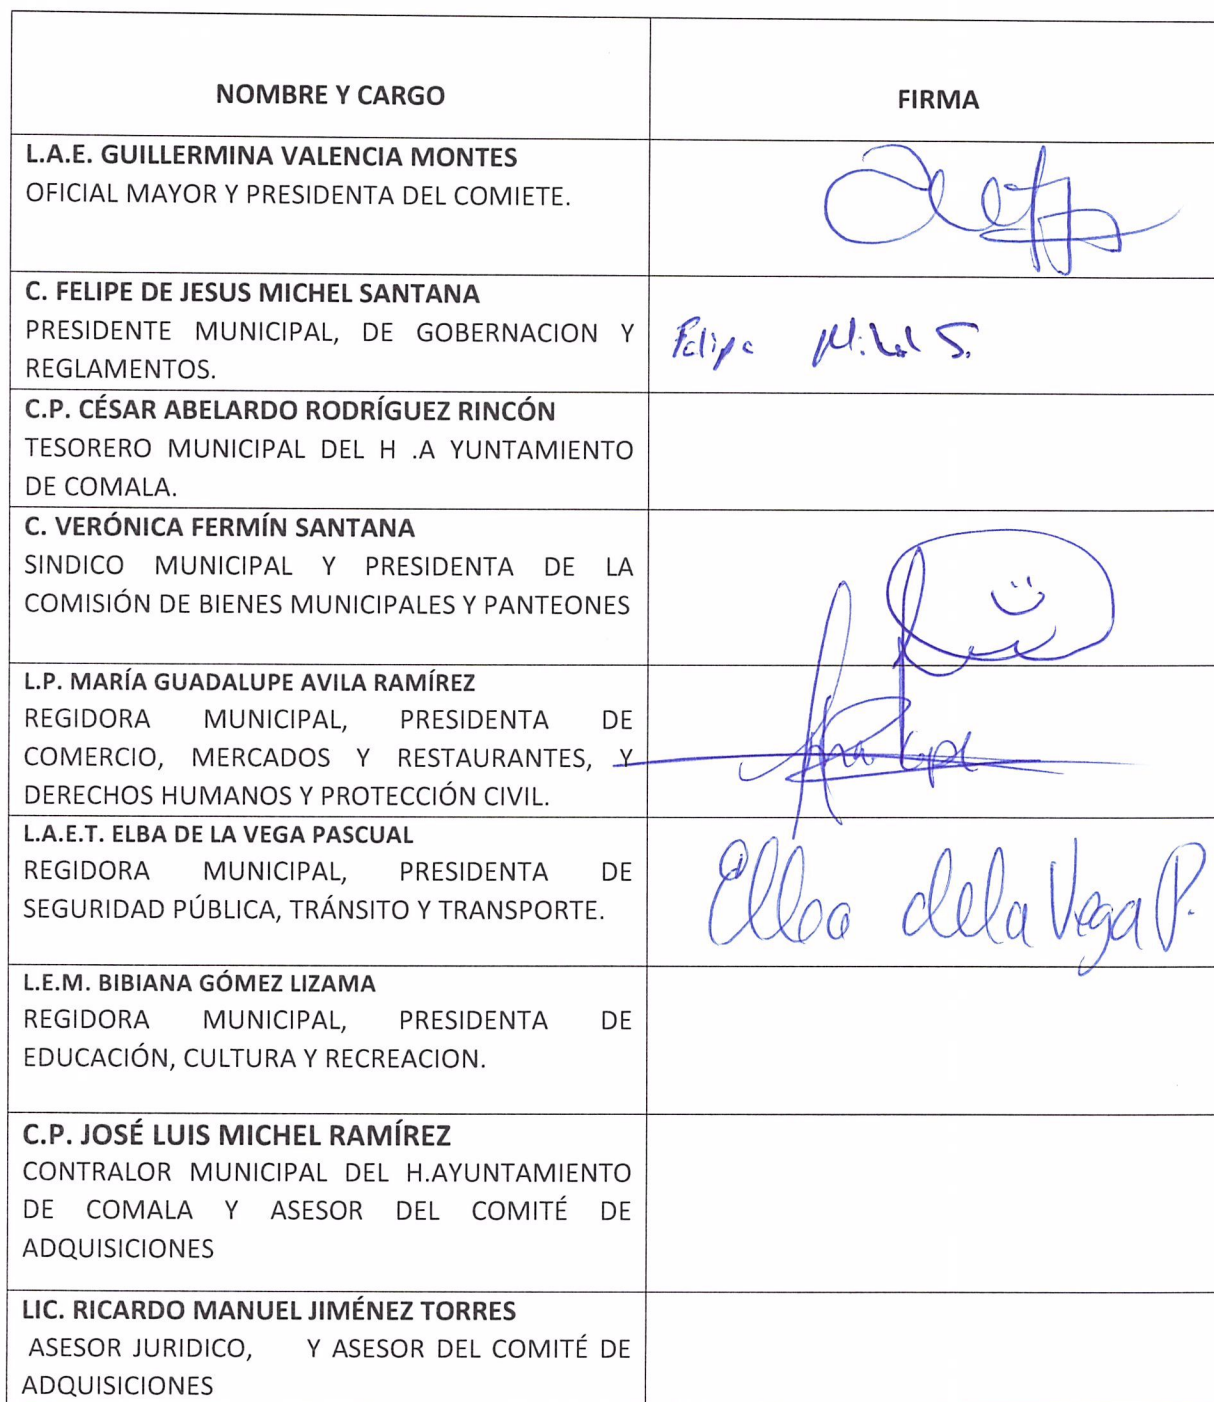 NOMBRE Y CARGO
FIRMA
L.A.E. GUILLERMINA VALENCIA MONTES
OFICIAL MAYOR Y PRESIDENTA DEL COMIETE.
C. FELIPE DE JESUS MICHEL SANTANA
PRESIDENTE MUNICIPAL, DE GOBERNACION Y
REGLAMENTOS.
Felipe Michel S.
C.P. CÉSAR ABELARDO RODRÍGUEZ RINCÓN
TESORERO MUNICIPAL DEL H .A YUNTAMIENTO
DE COMALA.
C. VERÓNICA FERMÍN SANTANA
SINDICO MUNICIPAL Y PRESIDENTA DE LA
COMISIÓN DE BIENES MUNICIPALES Y PANTEONES
L.P. MARÍA GUADALUPE AVILA RAMÍREZ
REGIDORA MUNICIPAL, PRESIDENTA DE
COMERCIO, MERCADOS Y RESTAURANTES, Y
DERECHOS HUMANOS Y PROTECCIÓN CIVIL.
L.A.E.T. ELBA DE LA VEGA PASCUAL
REGIDORA MUNICIPAL, PRESIDENTA DE
SEGURIDAD PÚBLICA, TRÁNSITO Y TRANSPORTE.
Elba de la Vega P.
L.E.M. BIBIANA GÓMEZ LIZAMA
REGIDORA MUNICIPAL, PRESIDENTA DE
EDUCACIÓN, CULTURA Y RECREACION.
C.P. JOSÉ LUIS MICHEL RAMÍREZ
CONTRALOR MUNICIPAL DEL H.AYUNTAMIENTO
DE COMALA Y ASESOR DEL COMITÉ DE
ADQUISICIONES
LIC. RICARDO MANUEL JIMÉNEZ TORRES
ASESOR JURIDICO, Y ASESOR DEL COMITÉ DE
ADQUISICIONES